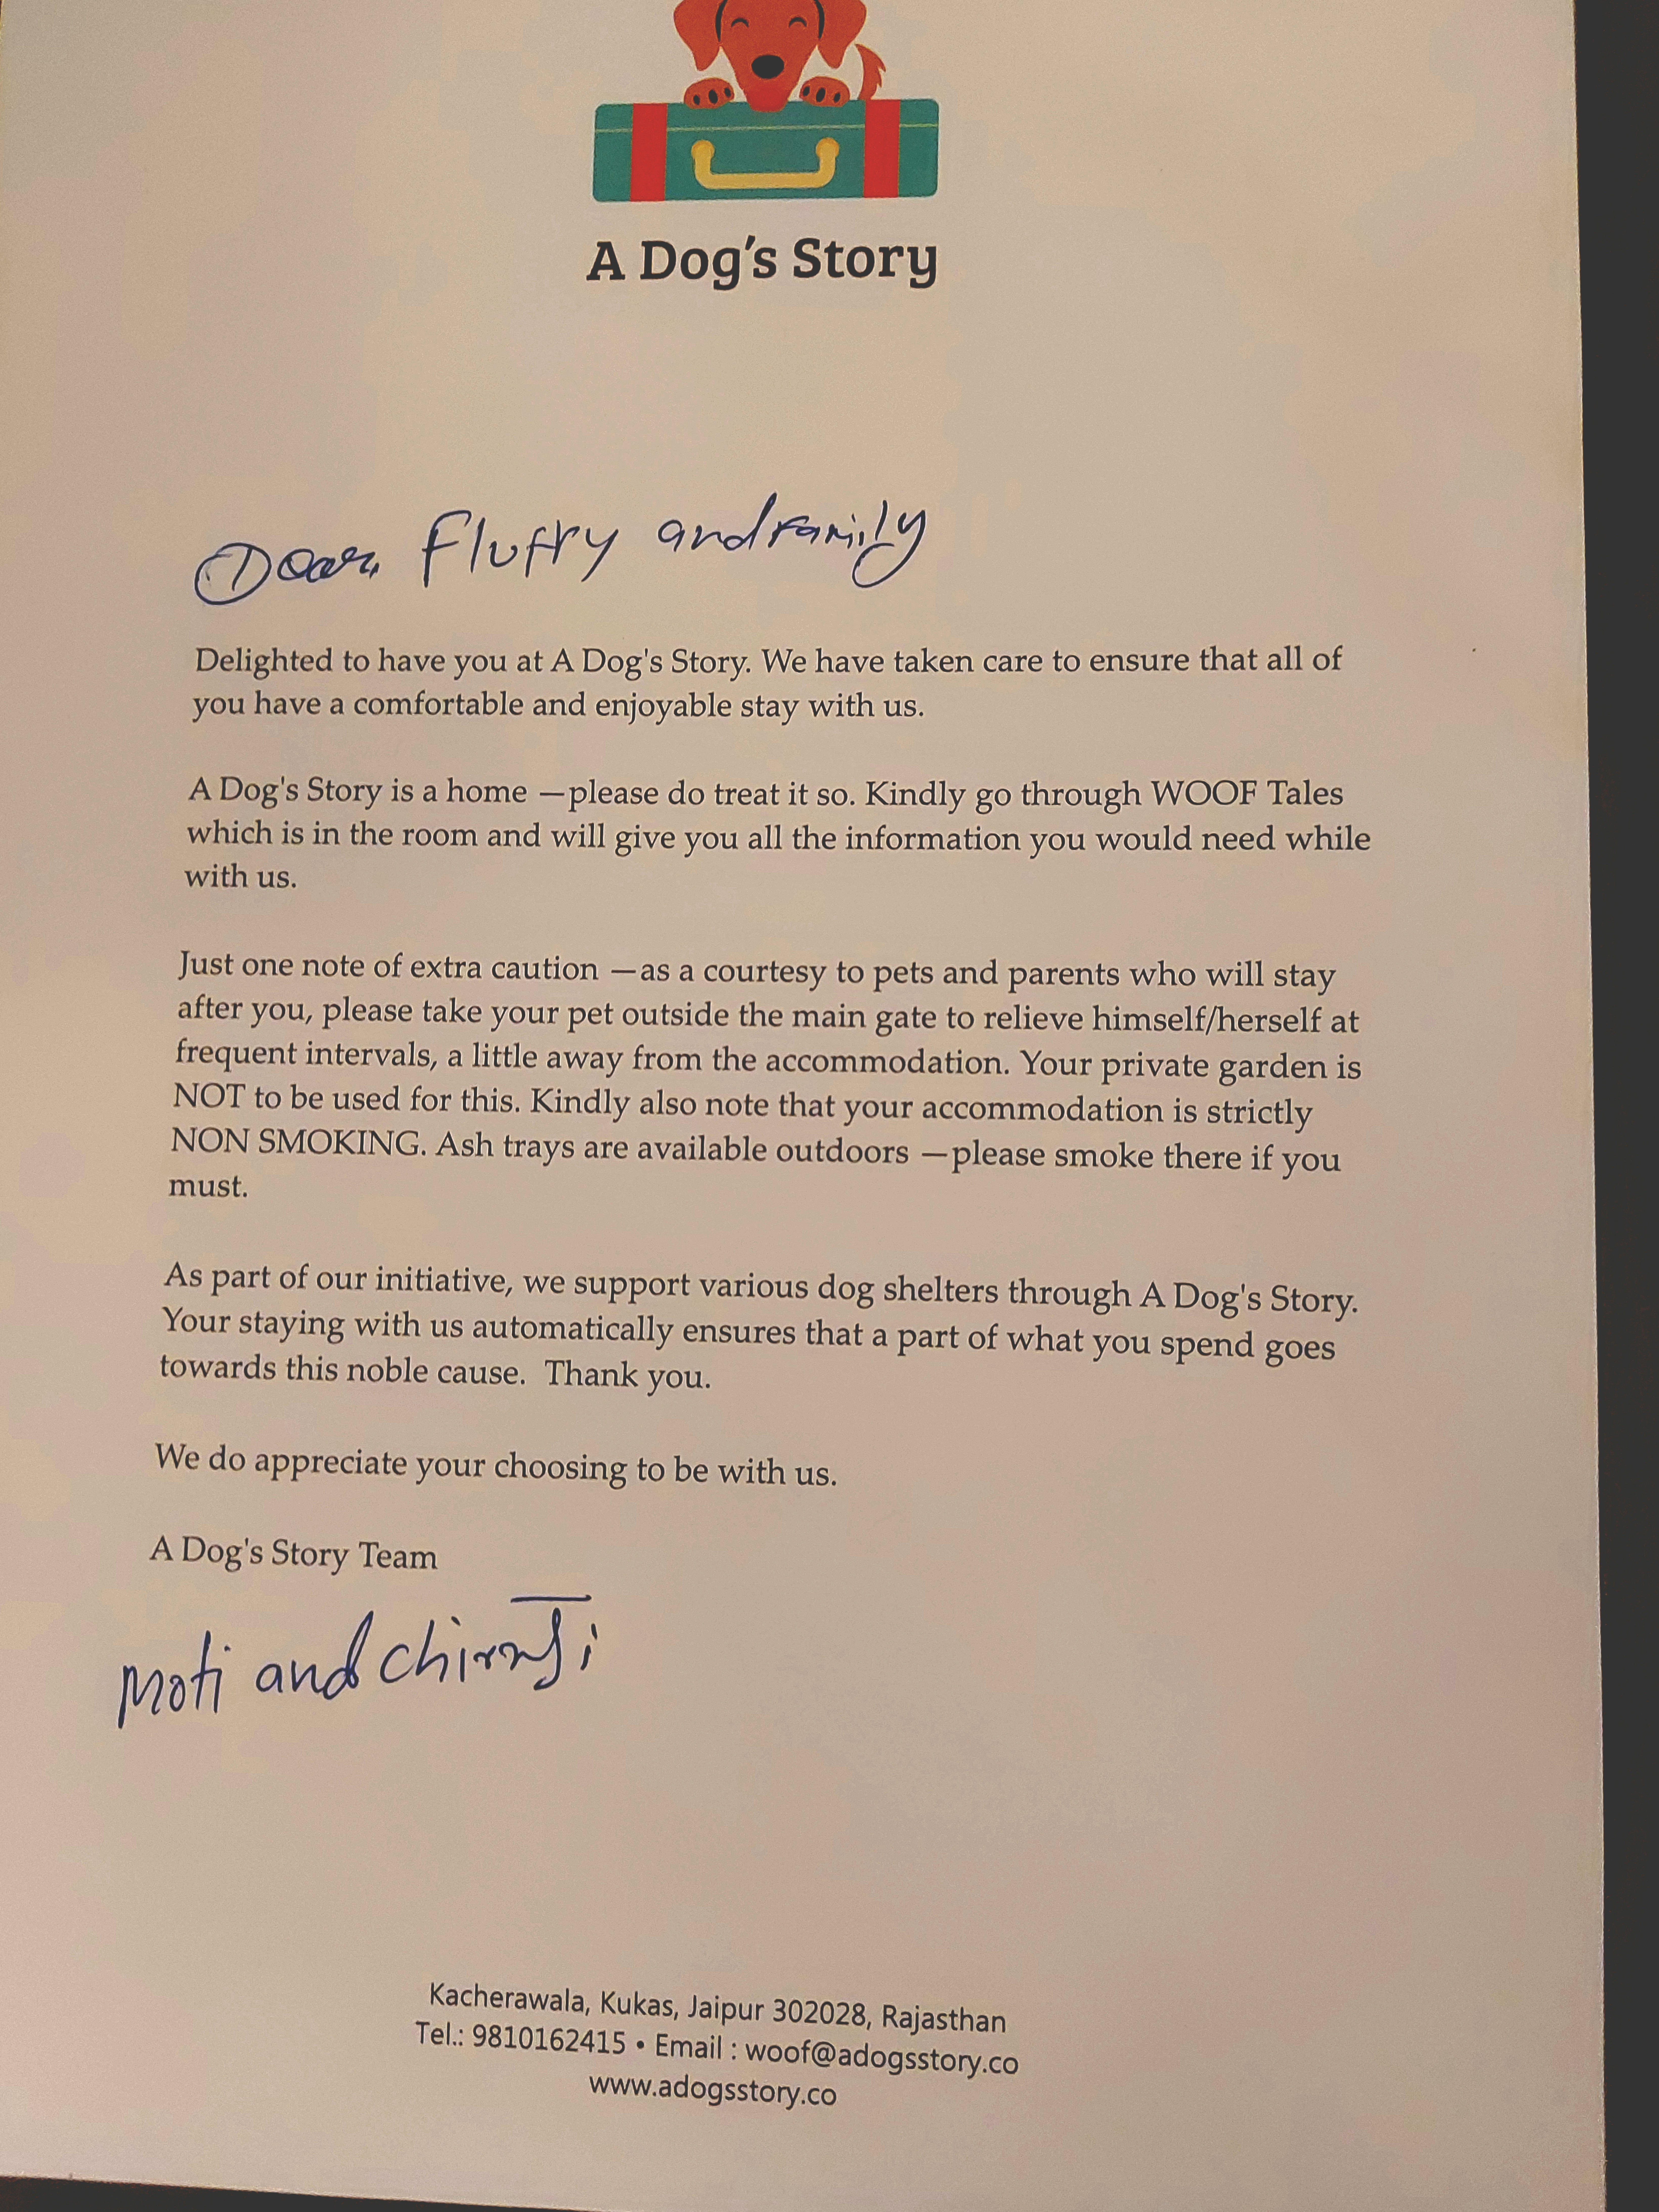 A Dog's Story
Dear Fluffy and family
Delighted to have you at A Dog's Story. We have taken care to ensure that all of
you have a comfortable and enjoyable stay with us.
A Dog's Story is a home —please do treat it so. Kindly go through WOOF Tales
which is in the room and will give you all the information you would need while
with us.
Just one note of extra caution —as a courtesy to pets and parents who will stay
after you, please take your pet outside the main gate to relieve himself/herself at
frequent intervals, a little away from the accommodation. Your private garden is
NOT to be used for this. Kindly also note that your accommodation is strictly
NON SMOKING. Ash trays are available outdoors —please smoke there if you
must.
As part of our initiative, we support various dog shelters through A Dog's Story.
Your staying with us automatically ensures that a part of what you spend goes
towards this noble cause.  Thank you.
We do appreciate your choosing to be with us.
A Dog's Story Team
Moti and
Kacherawala, Kukas, Jaipur 302028, Rajasthan
Tel.: 9810162415 • Email : woof@adogsstory.co
www.adogsstory.co